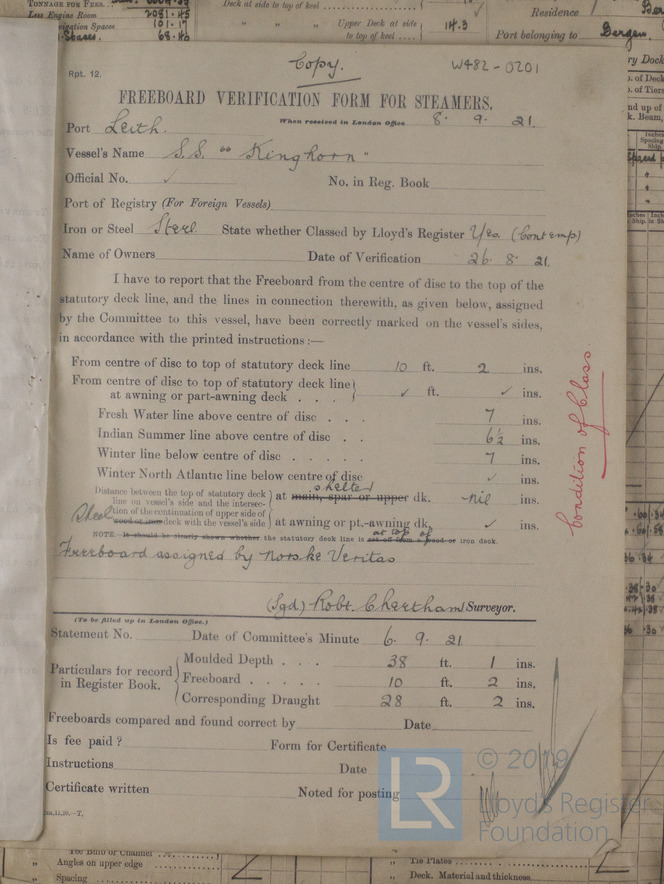 TONNAGE FOR FEES
Less Engine Room 2081.45
101.17
68.46
Deck at side to top of keel
" " " Upper Deck at side
to top of keel 14.3
Residence
Port belonging to Bergen
Copy.
W482-0201
Rpt. 12.
FREEBOARD VERIFICATION FORM FOR STEAMERS.
When received in London Office 8. 9. 21.
Port Leith.
Vessel's Name S.S. "Kinghorn"
Official No. ✓ No. in Reg. Book
Port of Registry (For Foreign Vessels)
Iron or Steel Steel State whether Classed by Lloyd's Register Yes. (Contemp)
Name of Owners Date of Verification 26. 8. 21.
I have to report that the Freeboard from the centre of disc to the top of the
statutory deck line, and the lines in connection therewith, as given below, assigned
by the Committee to this vessel, have been correctly marked on the vessel's sides,
in accordance with the printed instructions:—
From centre of disc to top of statutory deck line 10 ft. 2 ins.
From centre of disc to top of statutory deck line
at awning or part-awning deck . . . ✓ ft. ✓ ins.
Fresh Water line above centre of disc . . . 7 ins.
Indian Summer line above centre of disc . . 6½ ins.
Winter line below centre of disc . . . . . 7 ins.
Winter North Atlantic line below centre of disc ✓ ins.
Distance between the top of statutory deck
line on vessel's side and the intersec-
tion of the continuation of upper side of
Steel wood or iron deck with the vessel's side
shelter
at main, spar or upper dk. -nil ins.
at awning or pt.-awning dk. ✓ ins.
at top of
NOTE.—It should be clearly shown whether the statutory deck line is set off from a wood or iron deck.
Freeboard assigned by Norske Veritas
Condition of Class.
(Sgd) Robt. Cheetham Surveyor.
(To be filled up in London Office.)
Statement No. Date of Committee's Minute 6. 9. 21
Particulars for record
in Register Book.
Moulded Depth . . . 38 ft. 1 ins.
Freeboard . . . . . 10 ft. 2 ins.
Corresponding Draught 28 ft. 2 ins.
Freeboards compared and found correct by Date
Is fee paid? Form for Certificate
Instructions Date
Certificate written Noted for posting
LR
© 2019
Lloyd's Register
Foundation
" Angles on upper edge
" Spacing
" Tie Plates
" Deck, Material and thickness